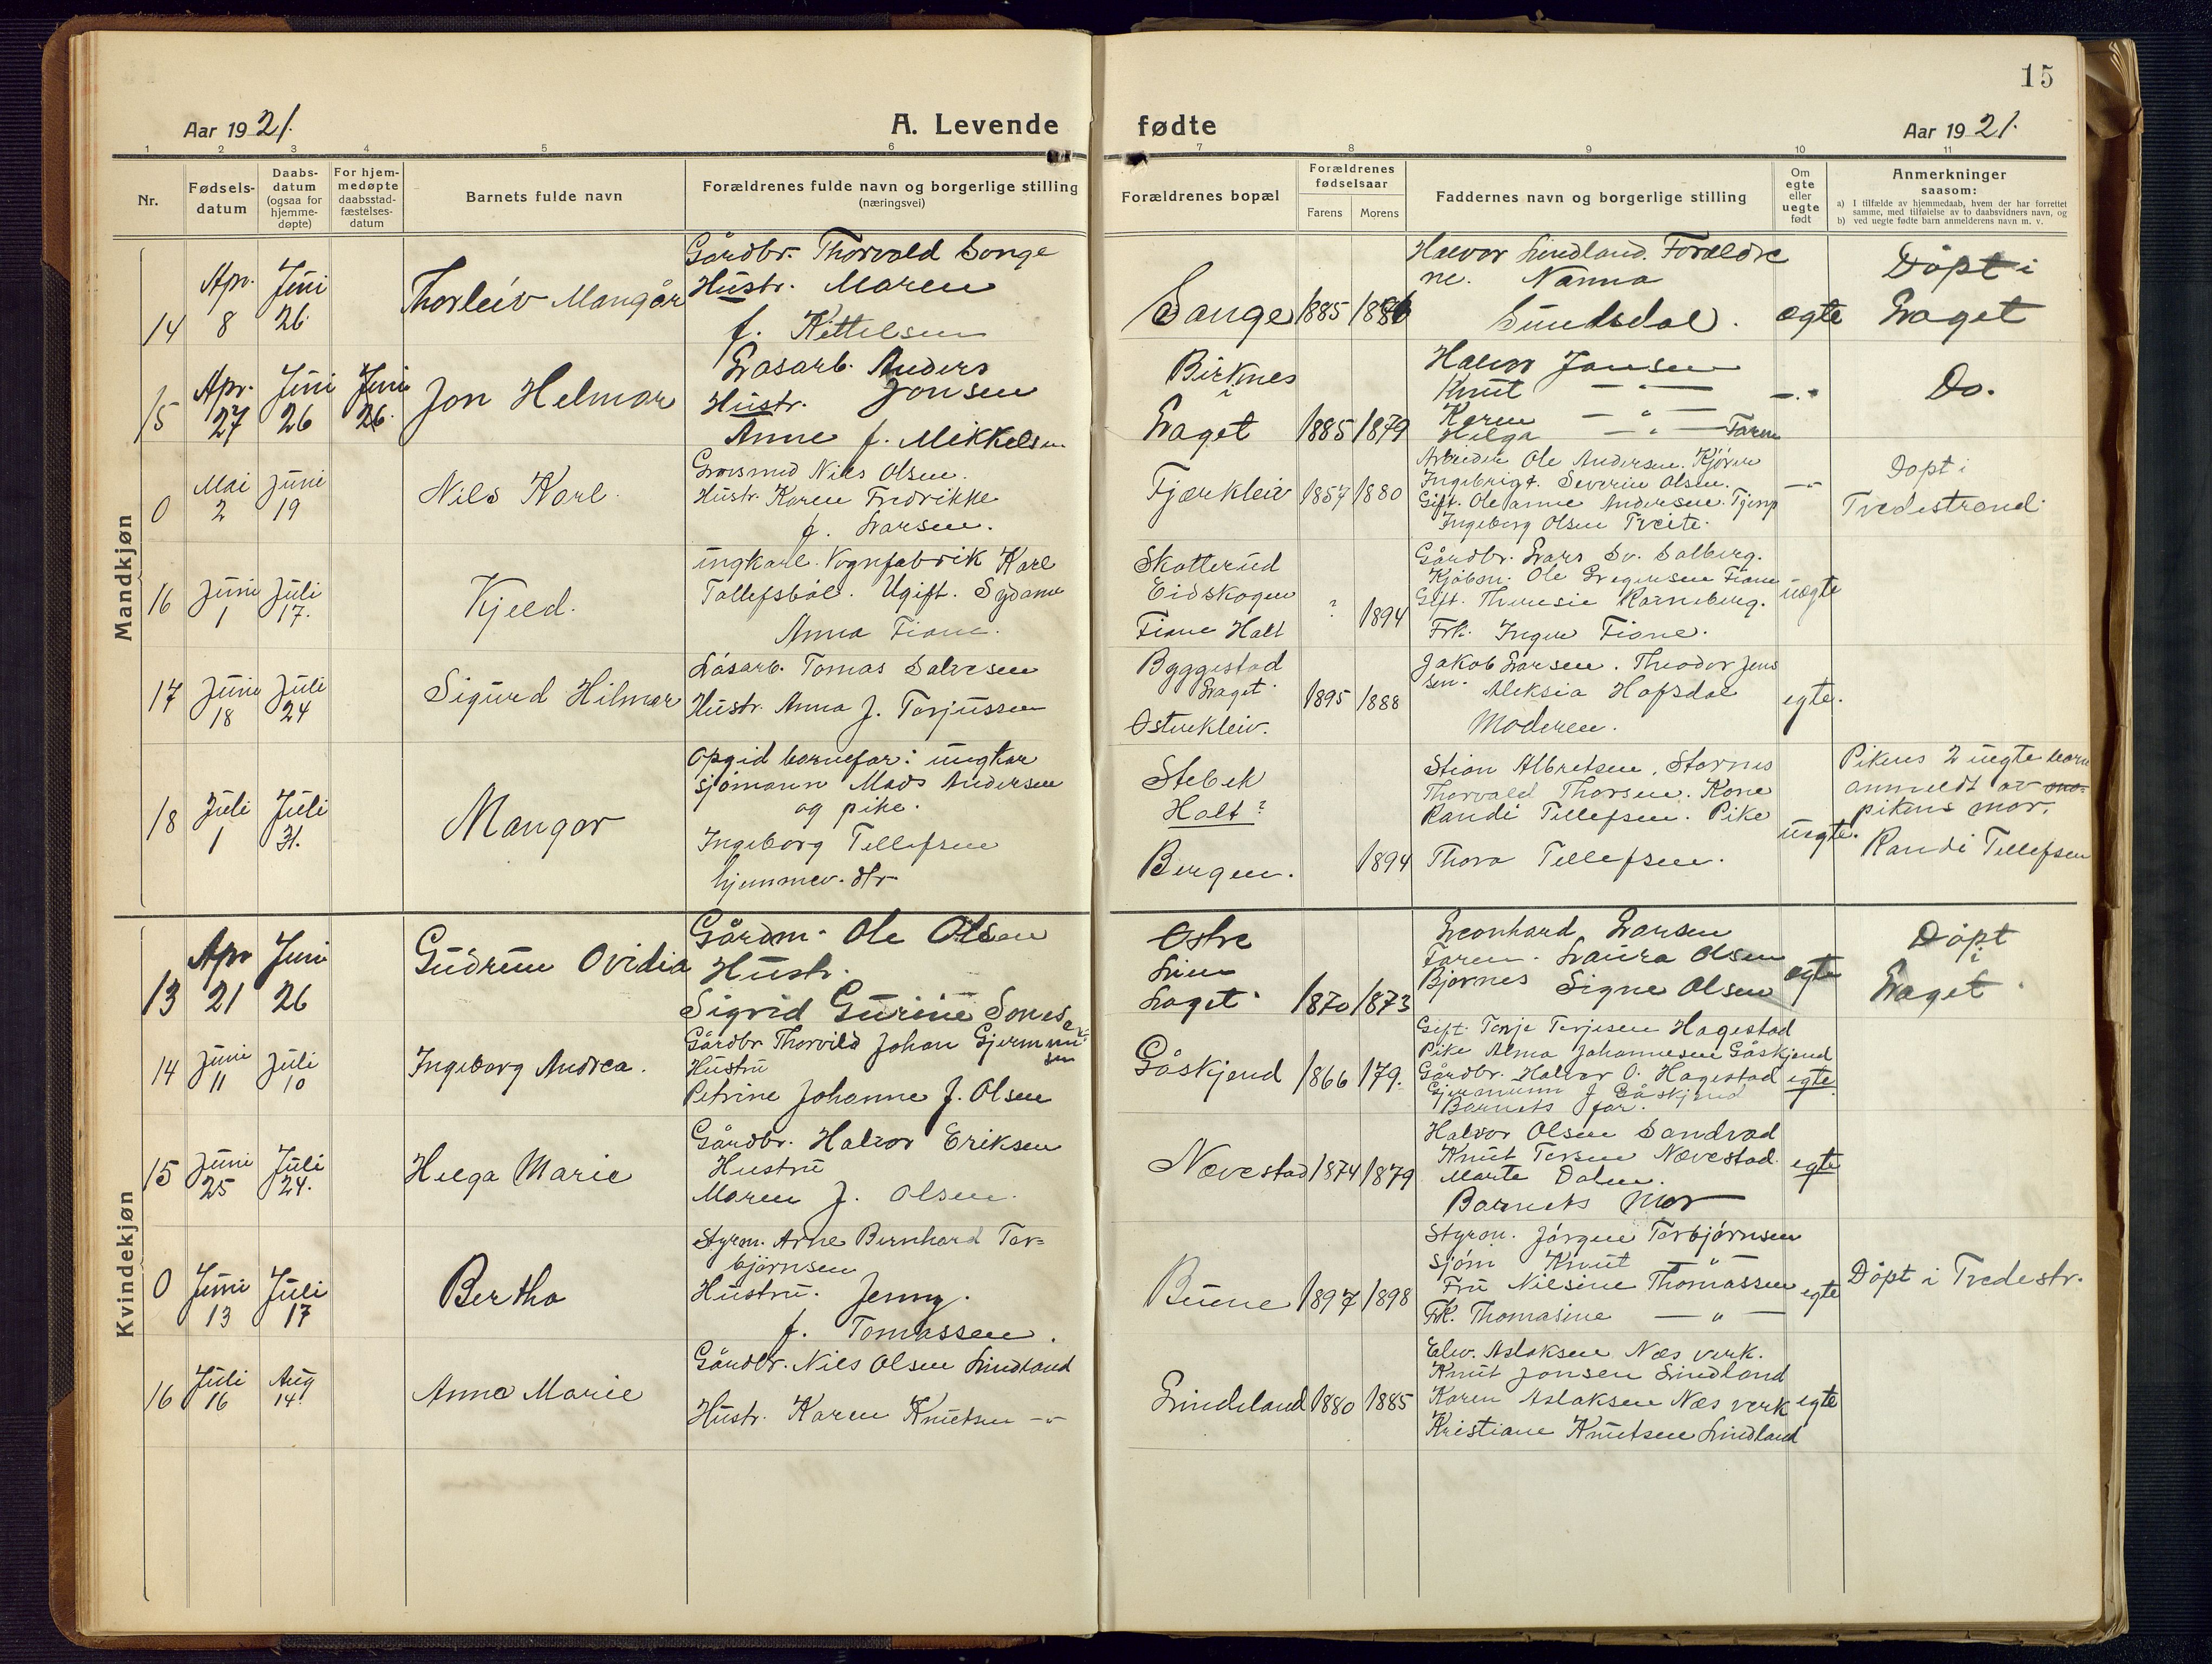 15
Aar 1921.
A. Levende
fødte
Aar 1921.
1 2 3 4 5 6 7 8 9 10 11
Nr.
Fødsels-
datum
Daabs-
datum
(ogsaa for
hjemme-
døpte)
For hjem-
medøpte
daabsstad-
fæstelses-
datum
Barnets fulde navn
Forældrenes fulde navn og borgerlige stilling
(næringsvei)
Forældrenes bopæl
Forældrenes
fødselsaar
Farens
Morens
Faddernes navn og borgerlige stilling
Om
egte
eller
uegte
født
Anmerkninger
saasom:
a) I tilfælde av hjemmedaab, hvem der har forrettet
samme, med tilføielse av to daabsvidners navn, og
b) ved uegte fødte barn anmelderens navn m. v.
Mandkjøn
14
Apr.
8
Juni
26
Thorleiv Mangår
Gårdbr. Thorvald Songe
Hustr. Maren
f. Kittelsen
Songe
1885
1886
Halvor Lindland. Forældre
ne. Nanna
Sundsdal.
egte
Døpt i
Laget
15
Apr.
27
Juni
26
Juni
26.
Jon Helmar
Løsarb. Anders
Jonsen
Hustr.
Anne f. Mikkelsen
Birknes
i
Laget
1885
1879
Halvor Jonsen
Knut — " —
Karen — " —
Helga — " — Faren
— " —
Do.
0
Mai
2
Juni
19
Nils Karl.
Nils Olsen.
Hustr. Karen Fredrikke
f. Larsen.
Fjærkleiv
1857
1880
Arbeider Ole Andersen.
Ingebrigt. Severin Olsen.
Gift. Oleanne Andersen.
Ingeborg Olsen Tveite.
— " —
Døpt i
Tvedestrand.
16
Juni
1
Juli
17.
Kjeld.
ungkarl. Vognfabrik Karl
Tollefsbøl. Ugift. Sydame
Anna Fiane.
Skotterud
Eidskogen
Fiane Holt
?
1894
Gårdbr. Lars Sv. Solberg.
Kjøbm. Ole Gregersen Fiane
Gift. Theresie Karneberg.
Frk. Inger Fiane.
uegte
17
Juni
18
Juli
24
Sigurd Hilmar
Løsarb. Tomas Salvesen
Hustr. Anna f. Torjussen
Byggestad
Laget
Østerkleiv.
1895
1888
Jakob Larsen. Theodor Jens
sen. Aleksia Hofsdal
Moderen.
egte.
18
Juli
1
Juli
31.
Mangor
Opgid barnefar: ungkar
sjømann Mads Andersen
og pike.
Ingeborg Tellefsen
hjemmev. dtr
Stebek
Holt?
Bergen.
1894
Stian Albretsen. Stornes
Thorvald Thorsen. Kone
Randi Tellefsen. Pike
Thora Tellefsen.
uegte.
Pikens 2 uegte barn
anmeldt av
pikens mor.
Randi Tellefsen
Kvindekjøn
13
Apr
21
Juni
26
Gudrun Ovidia
Gårdm. Ole Olsen
Hustr.
Sigrid Gurine
Østre
Lien
Laget
1870
1873
Leonhard Larsen
Faren. Laura Olsen
Bjørnes Signe Olsen
egte
Døpt
i
Laget
14
Juni
11
Juli
10
Ingeborg Andrea.
Gårdbr Thorvild Johan Gjermun
sen
Hustru
Petrine Johanne f. Olsen
Gåskjend
1866
179.
Gift. Tonje Terjesen Hagestad
Pike Alma Johannesen Gåskjend
Gårdbr. Halvor O. Hagestad
Gjermunn J Gåskjend
Barnets far.
egte
15
Juni
25
Juli
24.
Helga Marie
Gårdbr. Halvor Eriksen
Hustru
Maren f. Olsen.
Nævestad
1874
1879
Halvor Olsen Sandvad
Knut Tersen Nævestad.
Marte Dalen.
Barnets Mor
egte
0
Juni
13
Juli
17
Bertha
Styrm. Arne Bernhard Tor=
bjørnsen
Hustru. Jenny.
f. Tomassen.
Buene
1897
1898
Styrm. Jørgen Torbjørnsen
Sjøm Knut — " —
Fru Nilsine Thomassen
Frk. Thomasine — " —
egte
Døpt i Tvedestr.
16
Juli
16
Aug
14.
Anna Marie
Gårdbr. Nils Olsen Lindland
Hustr. Karen Knutsen — " —
Lindeland
1880
1885
Elev. Aslaksen Næs verk.
Knut Jonsen Lindland
Karen Aslaksen Næs verk
Kristiane Knutsen Lindland
egte